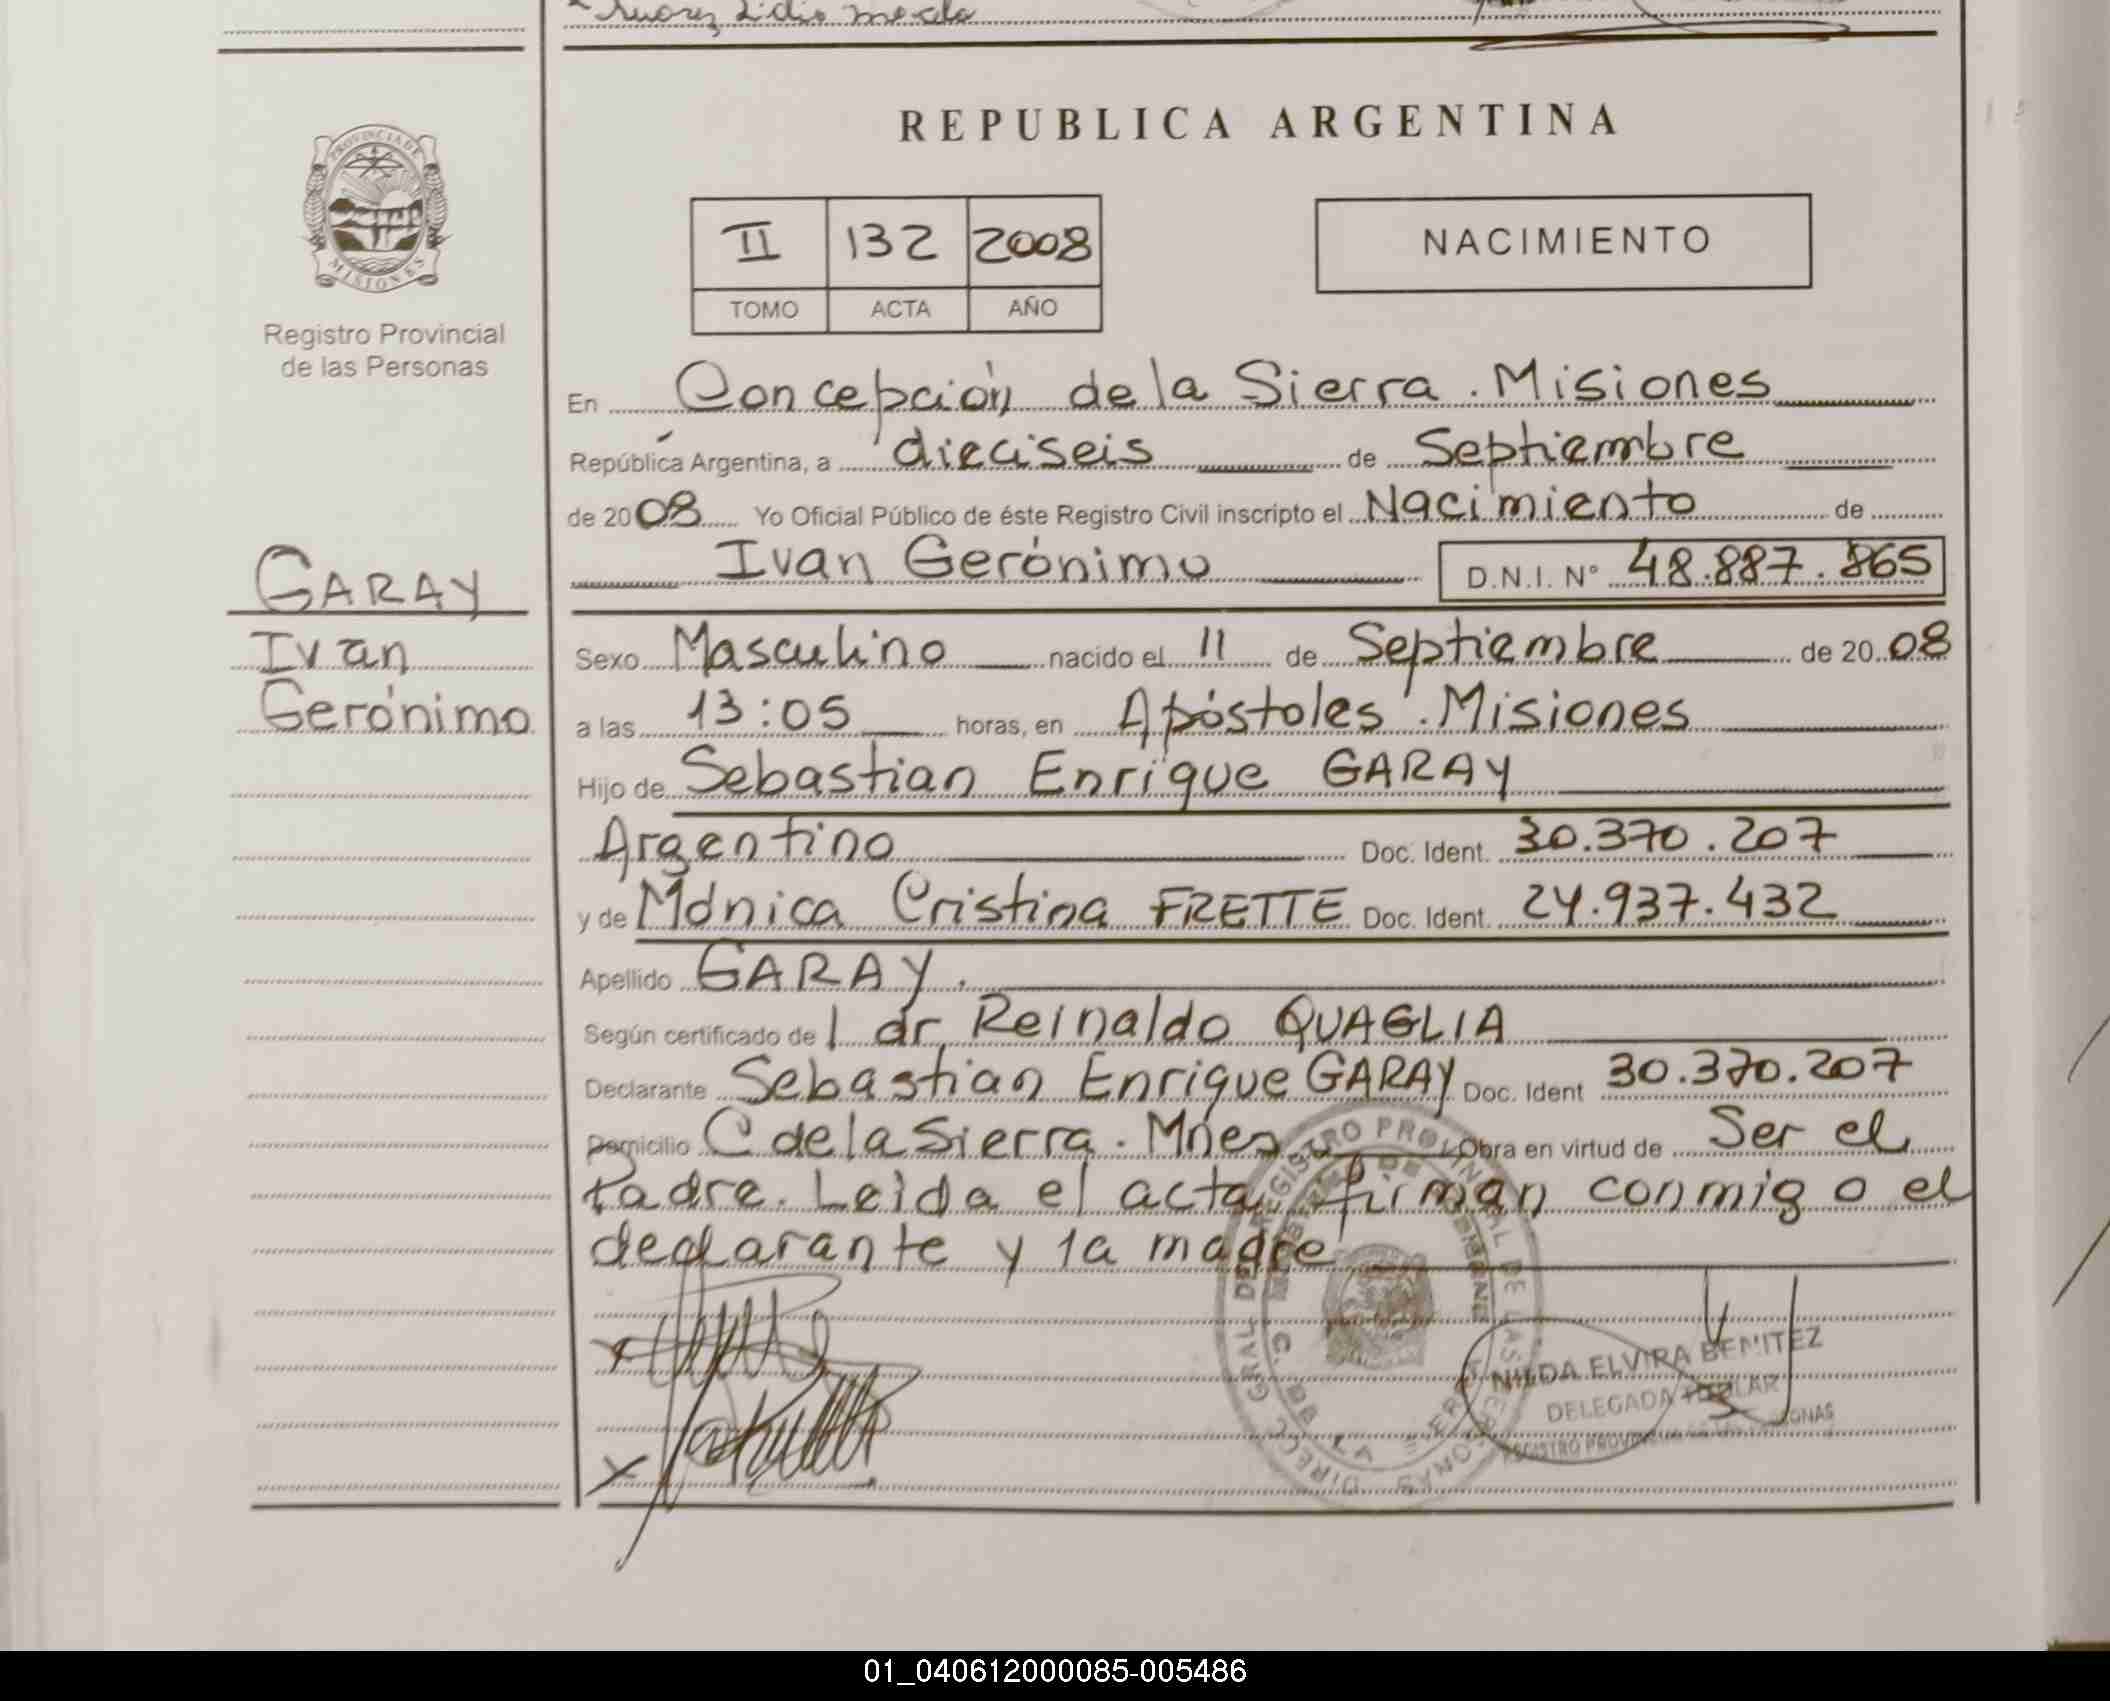 Suarez Lidio
REPUBLICA ARGENTINA
PROVINCIA DE
MISIONES
Registro Provincial
de las Personas
II 132 2008
TOMO ACTA AÑO
NACIMIENTO
En Concepción de la Sierra . Misiones
República Argentina, a dieciseis de Septiembre
de 2008 Yo Oficial Público de éste Registro Civil inscripto el Nacimiento de
Ivan Gerónimo D.N.I. N° 48.887.865
GARAY
Ivan
Gerónimo
Sexo Masculino nacido el 11 de Septiembre de 2008
a las 13:05 horas, en Apóstoles . Misiones
Hijo de Sebastian Enrique GARAY
Argentino Doc. Ident. 30.370.207
y de Mónica Cristina FRETTE Doc. Ident. 24.937.432
Apellido GARAY.
Según certificado de l dr. Reinaldo QUAGLIA
Declarante Sebastian Enrique GARAY Doc. Ident 30.370.207
Domicilio C de la Sierra . Mnes Obra en virtud de Ser el
Padre. Leida el acta firman conmigo el
declarante y la madre
DIRECC. GRAL. DEL REGISTRO PROVINCIAL DE LAS PERSONAS
C. DE LA SIERRA
NILDA ELVIRA BENITEZ
DELEGADA TITULAR
REGISTRO PROVINCIAL DE LAS PERSONAS
01_040612000085-005486